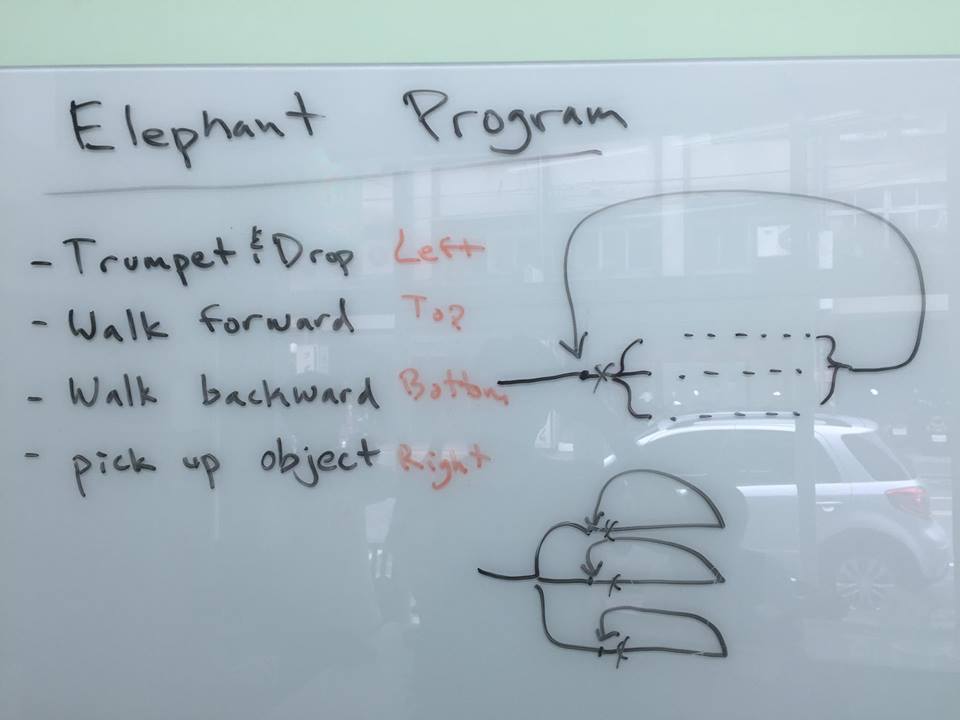 Elephant Program
- Trumpet & Drop Left
- Walk forward Top
- Walk backward Bottom
- pick up object Right